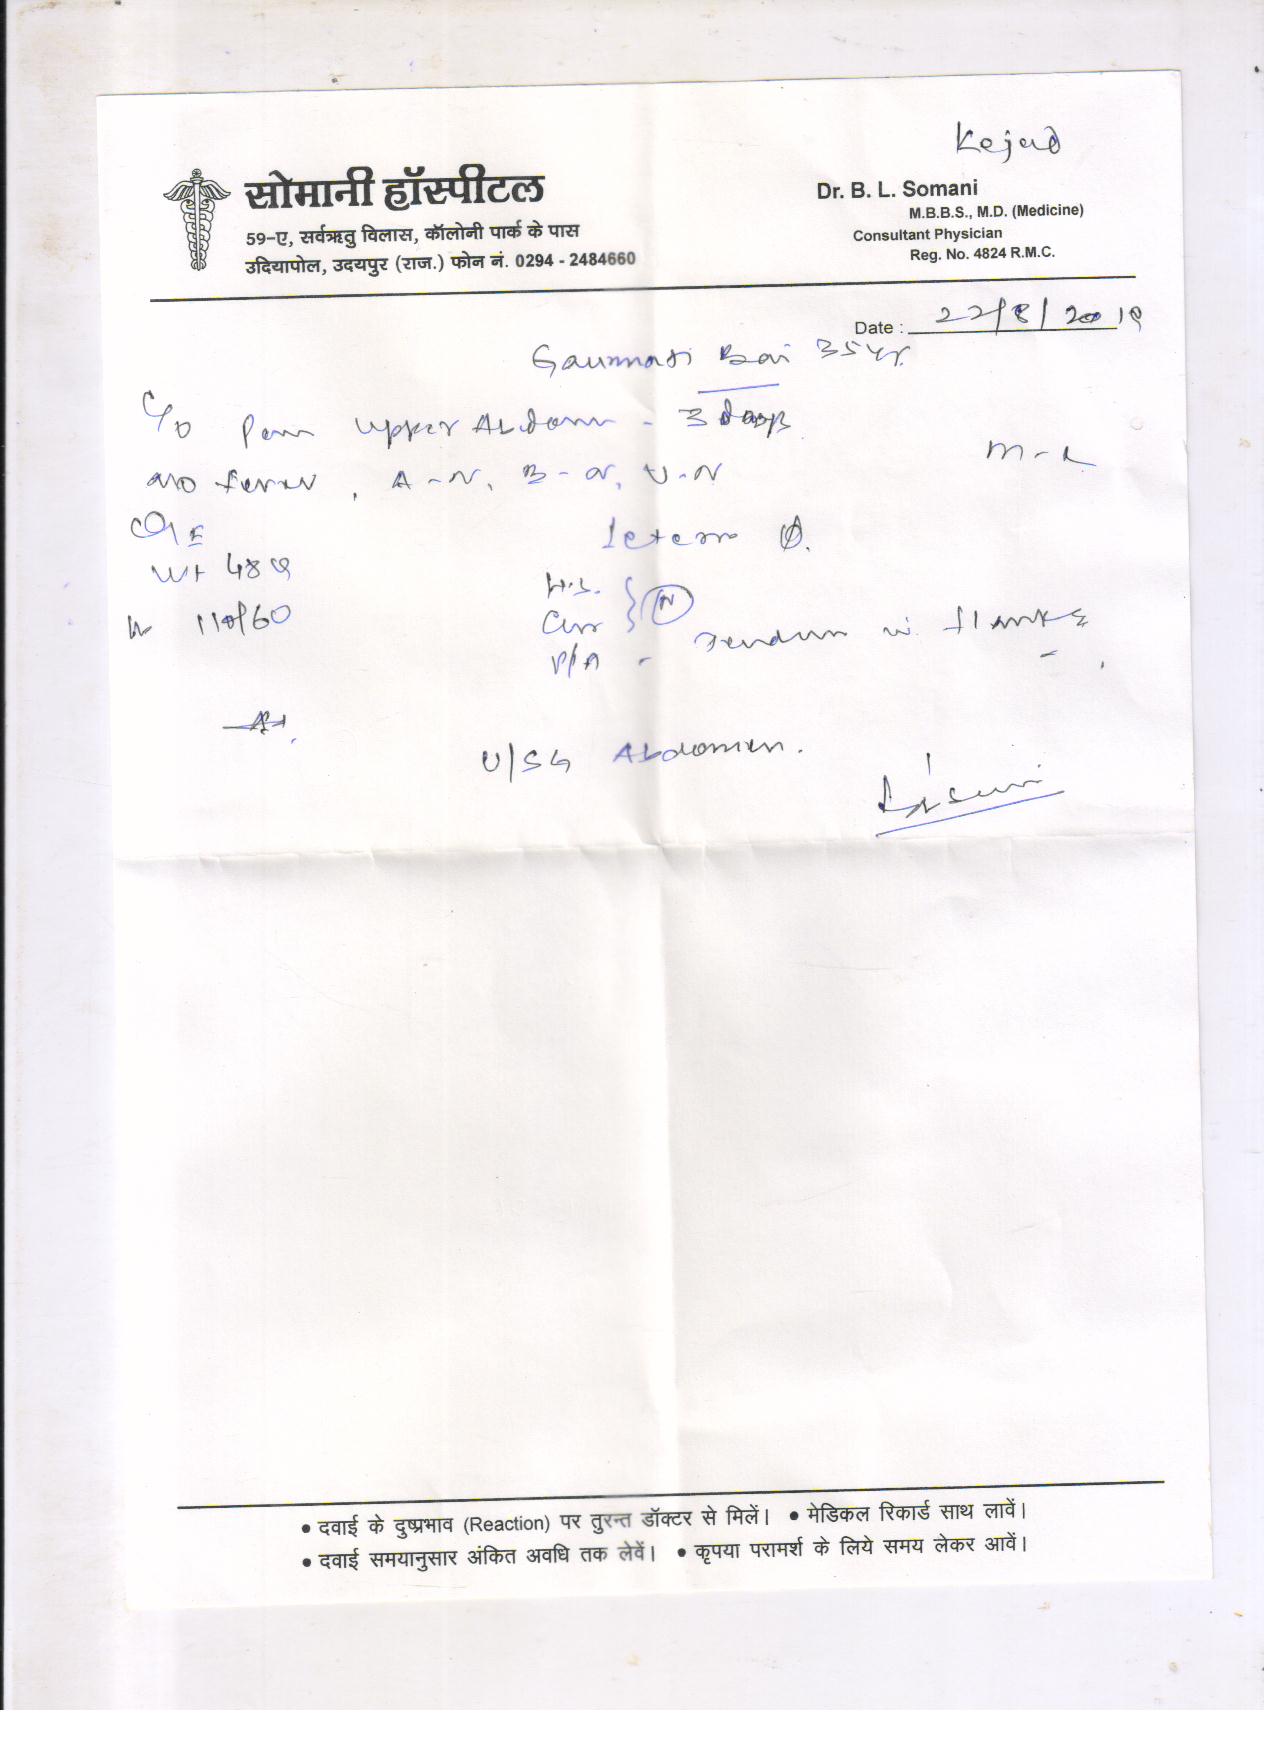 Kejad
सोमानी हॉस्पीटल
59-ए, सर्वऋतु विलास, कॉलोनी पार्क के पास
उदियापोल, उदयपुर (राज.) फोन नं. 0294 - 2484660
Dr. B. L. Somani
M.B.B.S., M.D. (Medicine)
Consultant Physician
Reg. No. 4824 R.M.C.
Date : 22/8/2019
Bai 35 yr.
C/o Pain Upper Abdom - 3 days
M - L
no fever, A - N, B - N, U - N
O/E
Wt 48
110/60
H.S.
N
P/A - in flanks
U/SG Abdomen.
• दवाई के दुष्प्रभाव (Reaction) पर तुरन्त डॉक्टर से मिलें। • मेडिकल रिकार्ड साथ लावें।
• दवाई समयानुसार अंकित अवधि तक लेवें। • कृपया परामर्श के लिये समय लेकर आवें।